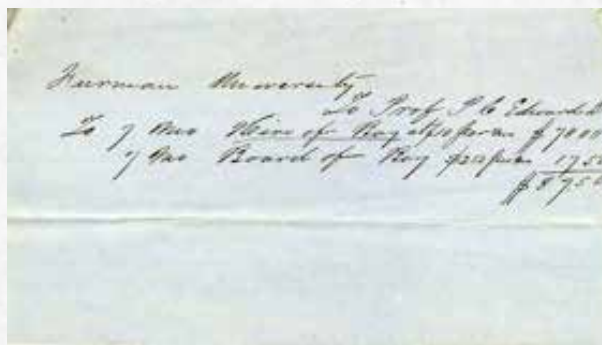 Furman University
To Prof P. C. Edwards
To 7 mo Hire of Boy at $10 per mo $70.00
7 mo Board of Boy $2.50 per mo 17.50
$87.50